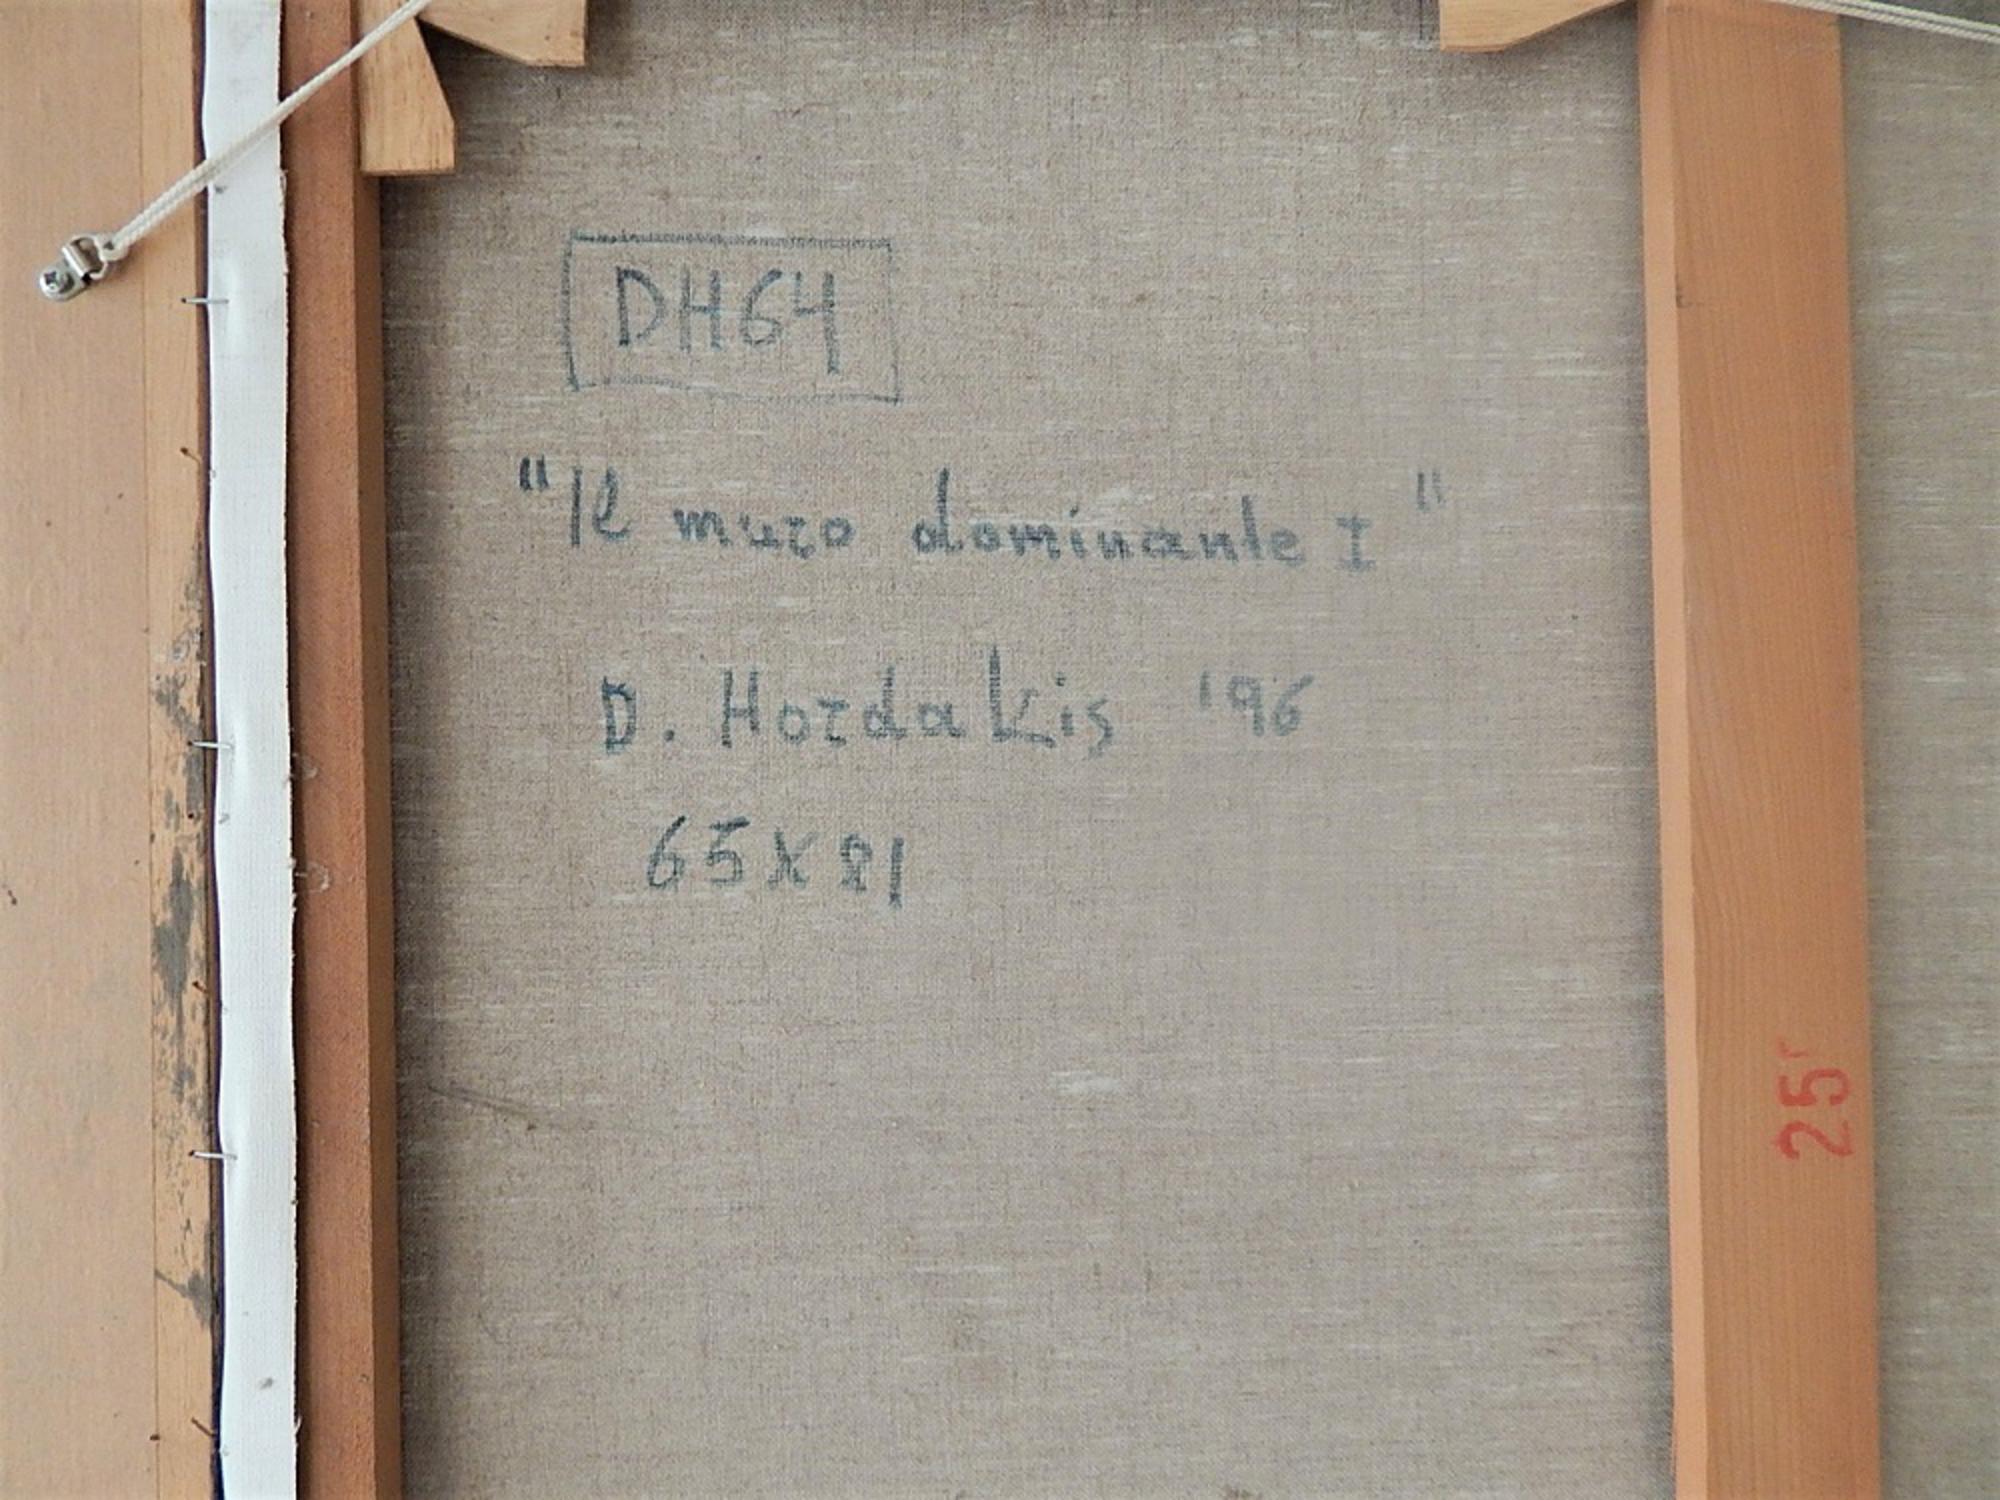 DH64
"Il muro dominante I"
D. Hordakis '96
65X81
25F